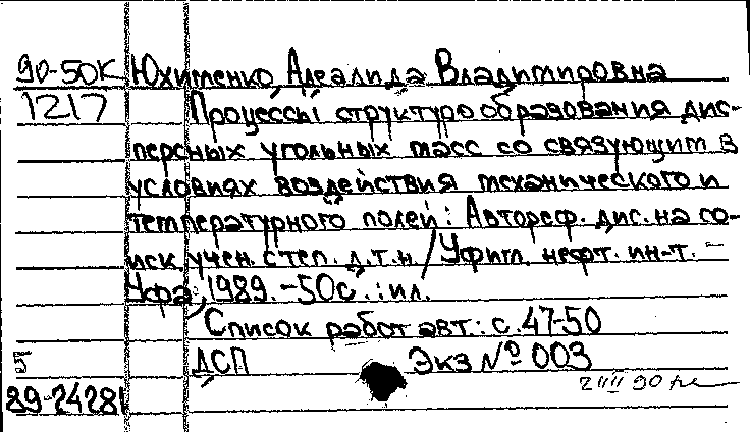 90-50К Юхименко, Аделаида Владимировна
1217 Процессы структурообразования дис-
персных угольных масс со связующим в
условиях воздействия механического и
температурного полей: Автореф. дис. на со-
иск. учен. степ. д.т.н. / Уфим. нефт. ин-т. -
Уфа, 1989. - 50с.: ил.
Список работ авт.: с. 47-50
5 ДСП Экз № 003
89-24281